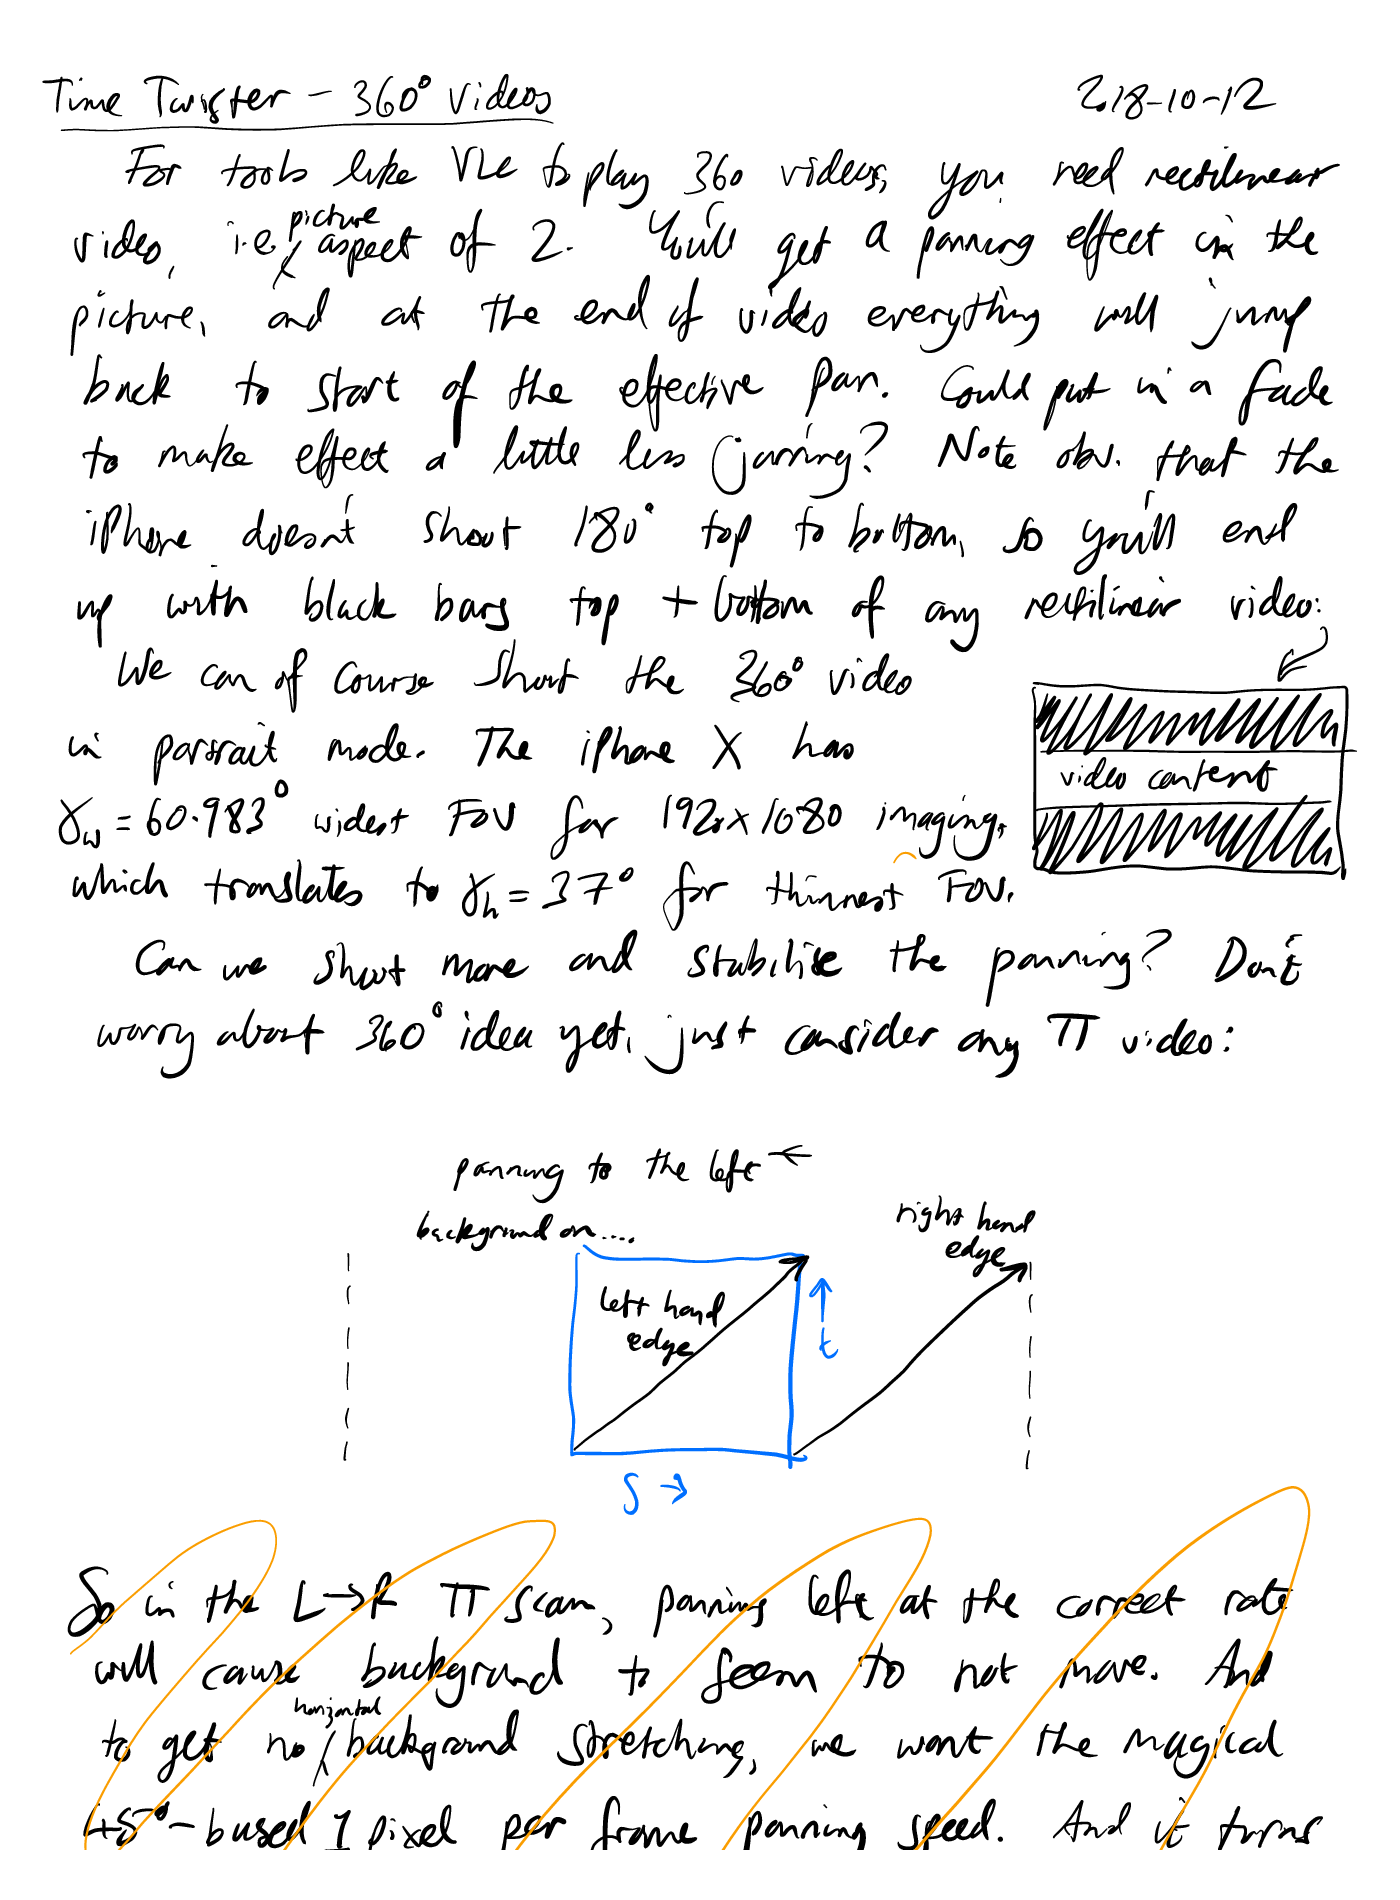 Time Twister - 360° videos 2018-10-12
For tools like VLC to play 360 videos, you need rectilinear
picture
video, i.e. aspect of 2. You'll get a panning effect in the
picture, and at the end of video everything will jump
back to start of the effective pan. Could put in a fade
to make effect a little less jarring? Note obv. that the
iPhone doesn't shoot 180° top to bottom, so you'll end
up with black bars top + bottom of any rectilinear video:
We can of course shoot the 360° video
in portrait mode. The iphone X has
video content
γw = 60.983° widest FOV for 1920x1080 imaging,
which translates to γh = 37° for thinnest FOV.
Can we shoot more and stabilise the panning? Don't
worry about 360° idea yet, just consider any π video:
panning to the left ←
background on....
right hand
edge
left hand
edge
↑
t
s →
So in the L→R π scan, panning left at the correct rate
will cause background to seem to not move. And
horizontal
to get no background stretching, we want the magical
45°-based 1 pixel per frame panning speed. And it turns